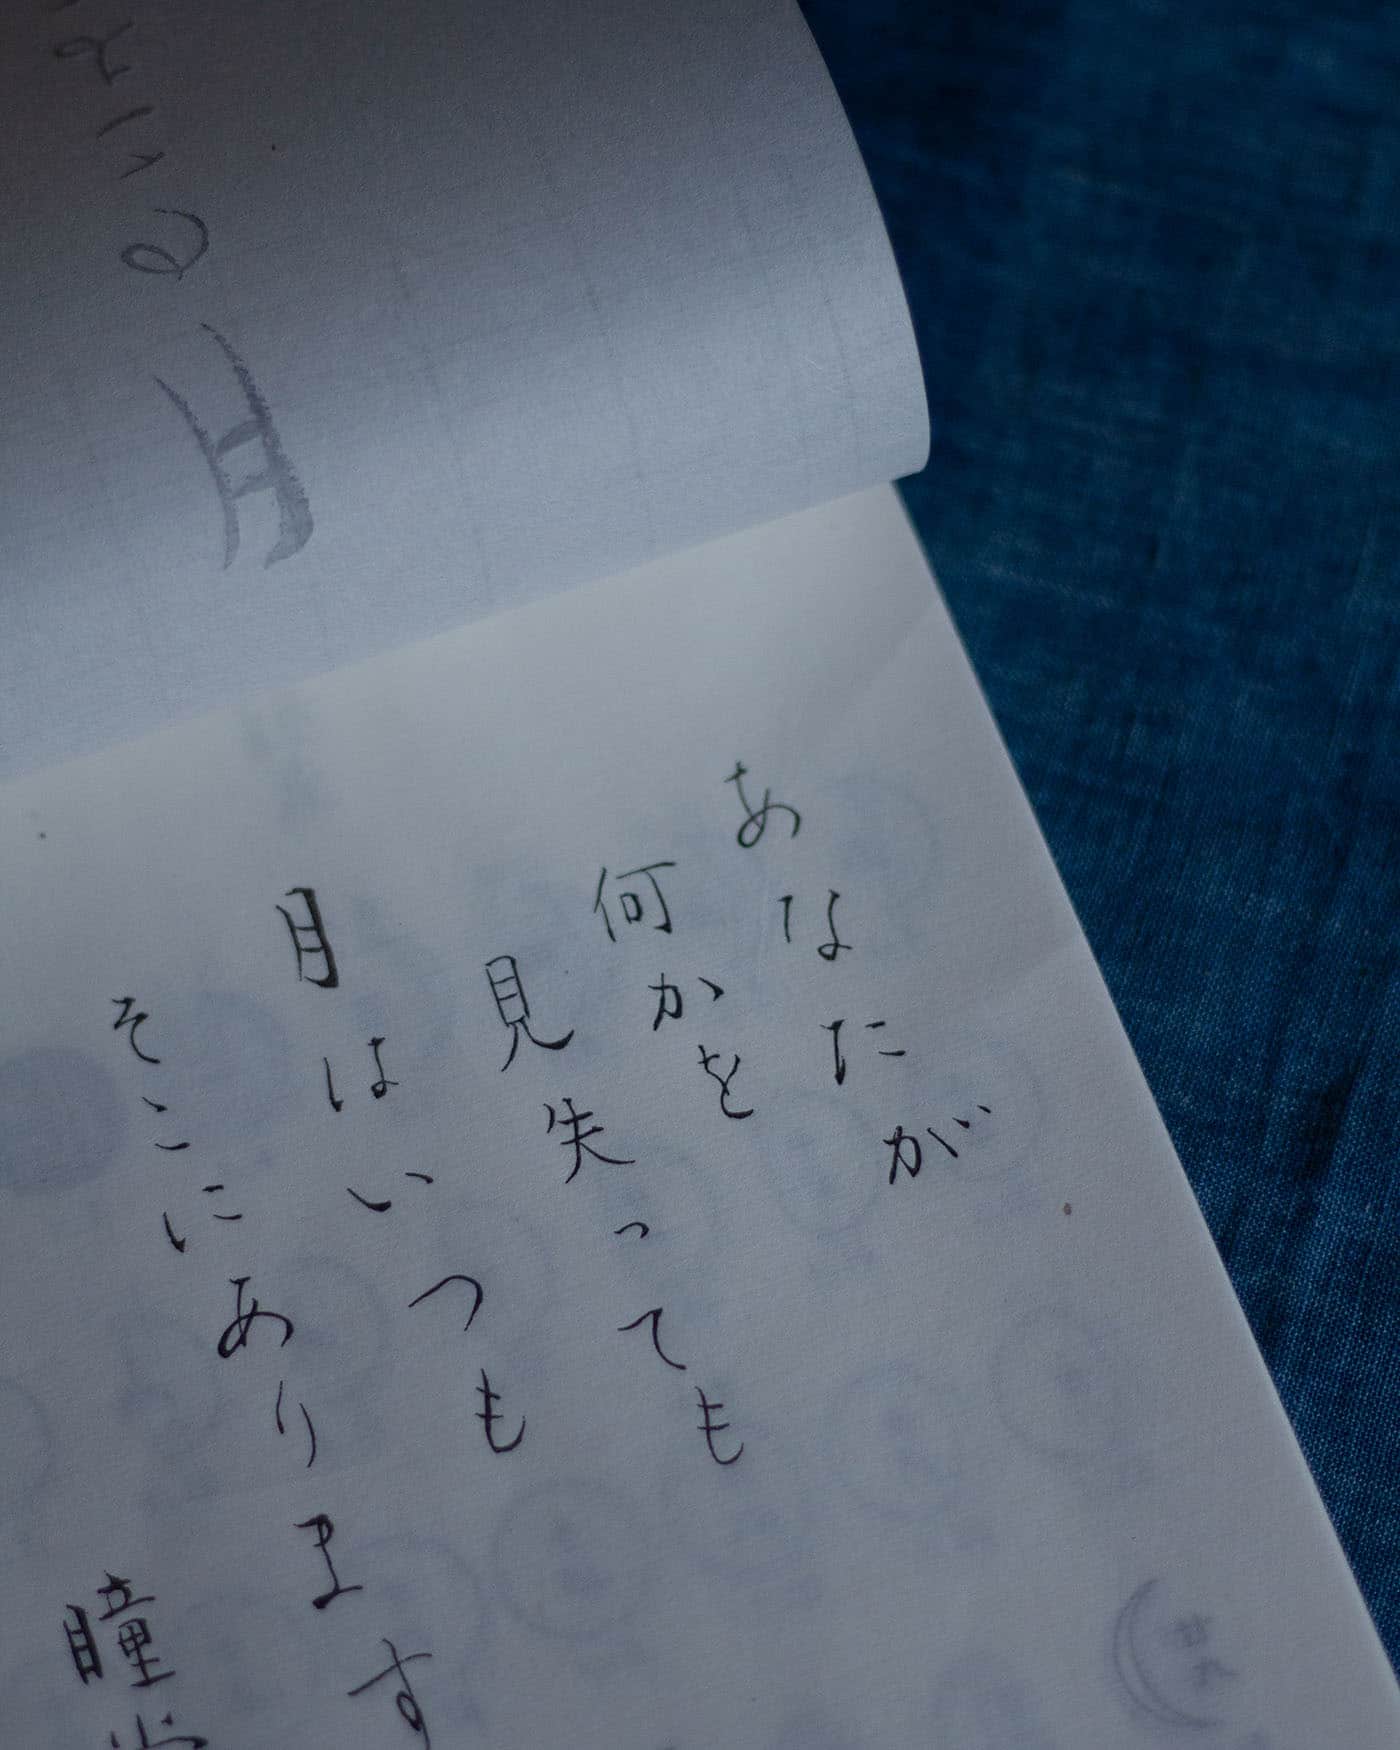 あなたが
何かを
見失っても
月はいつも
そこにあります
瞳